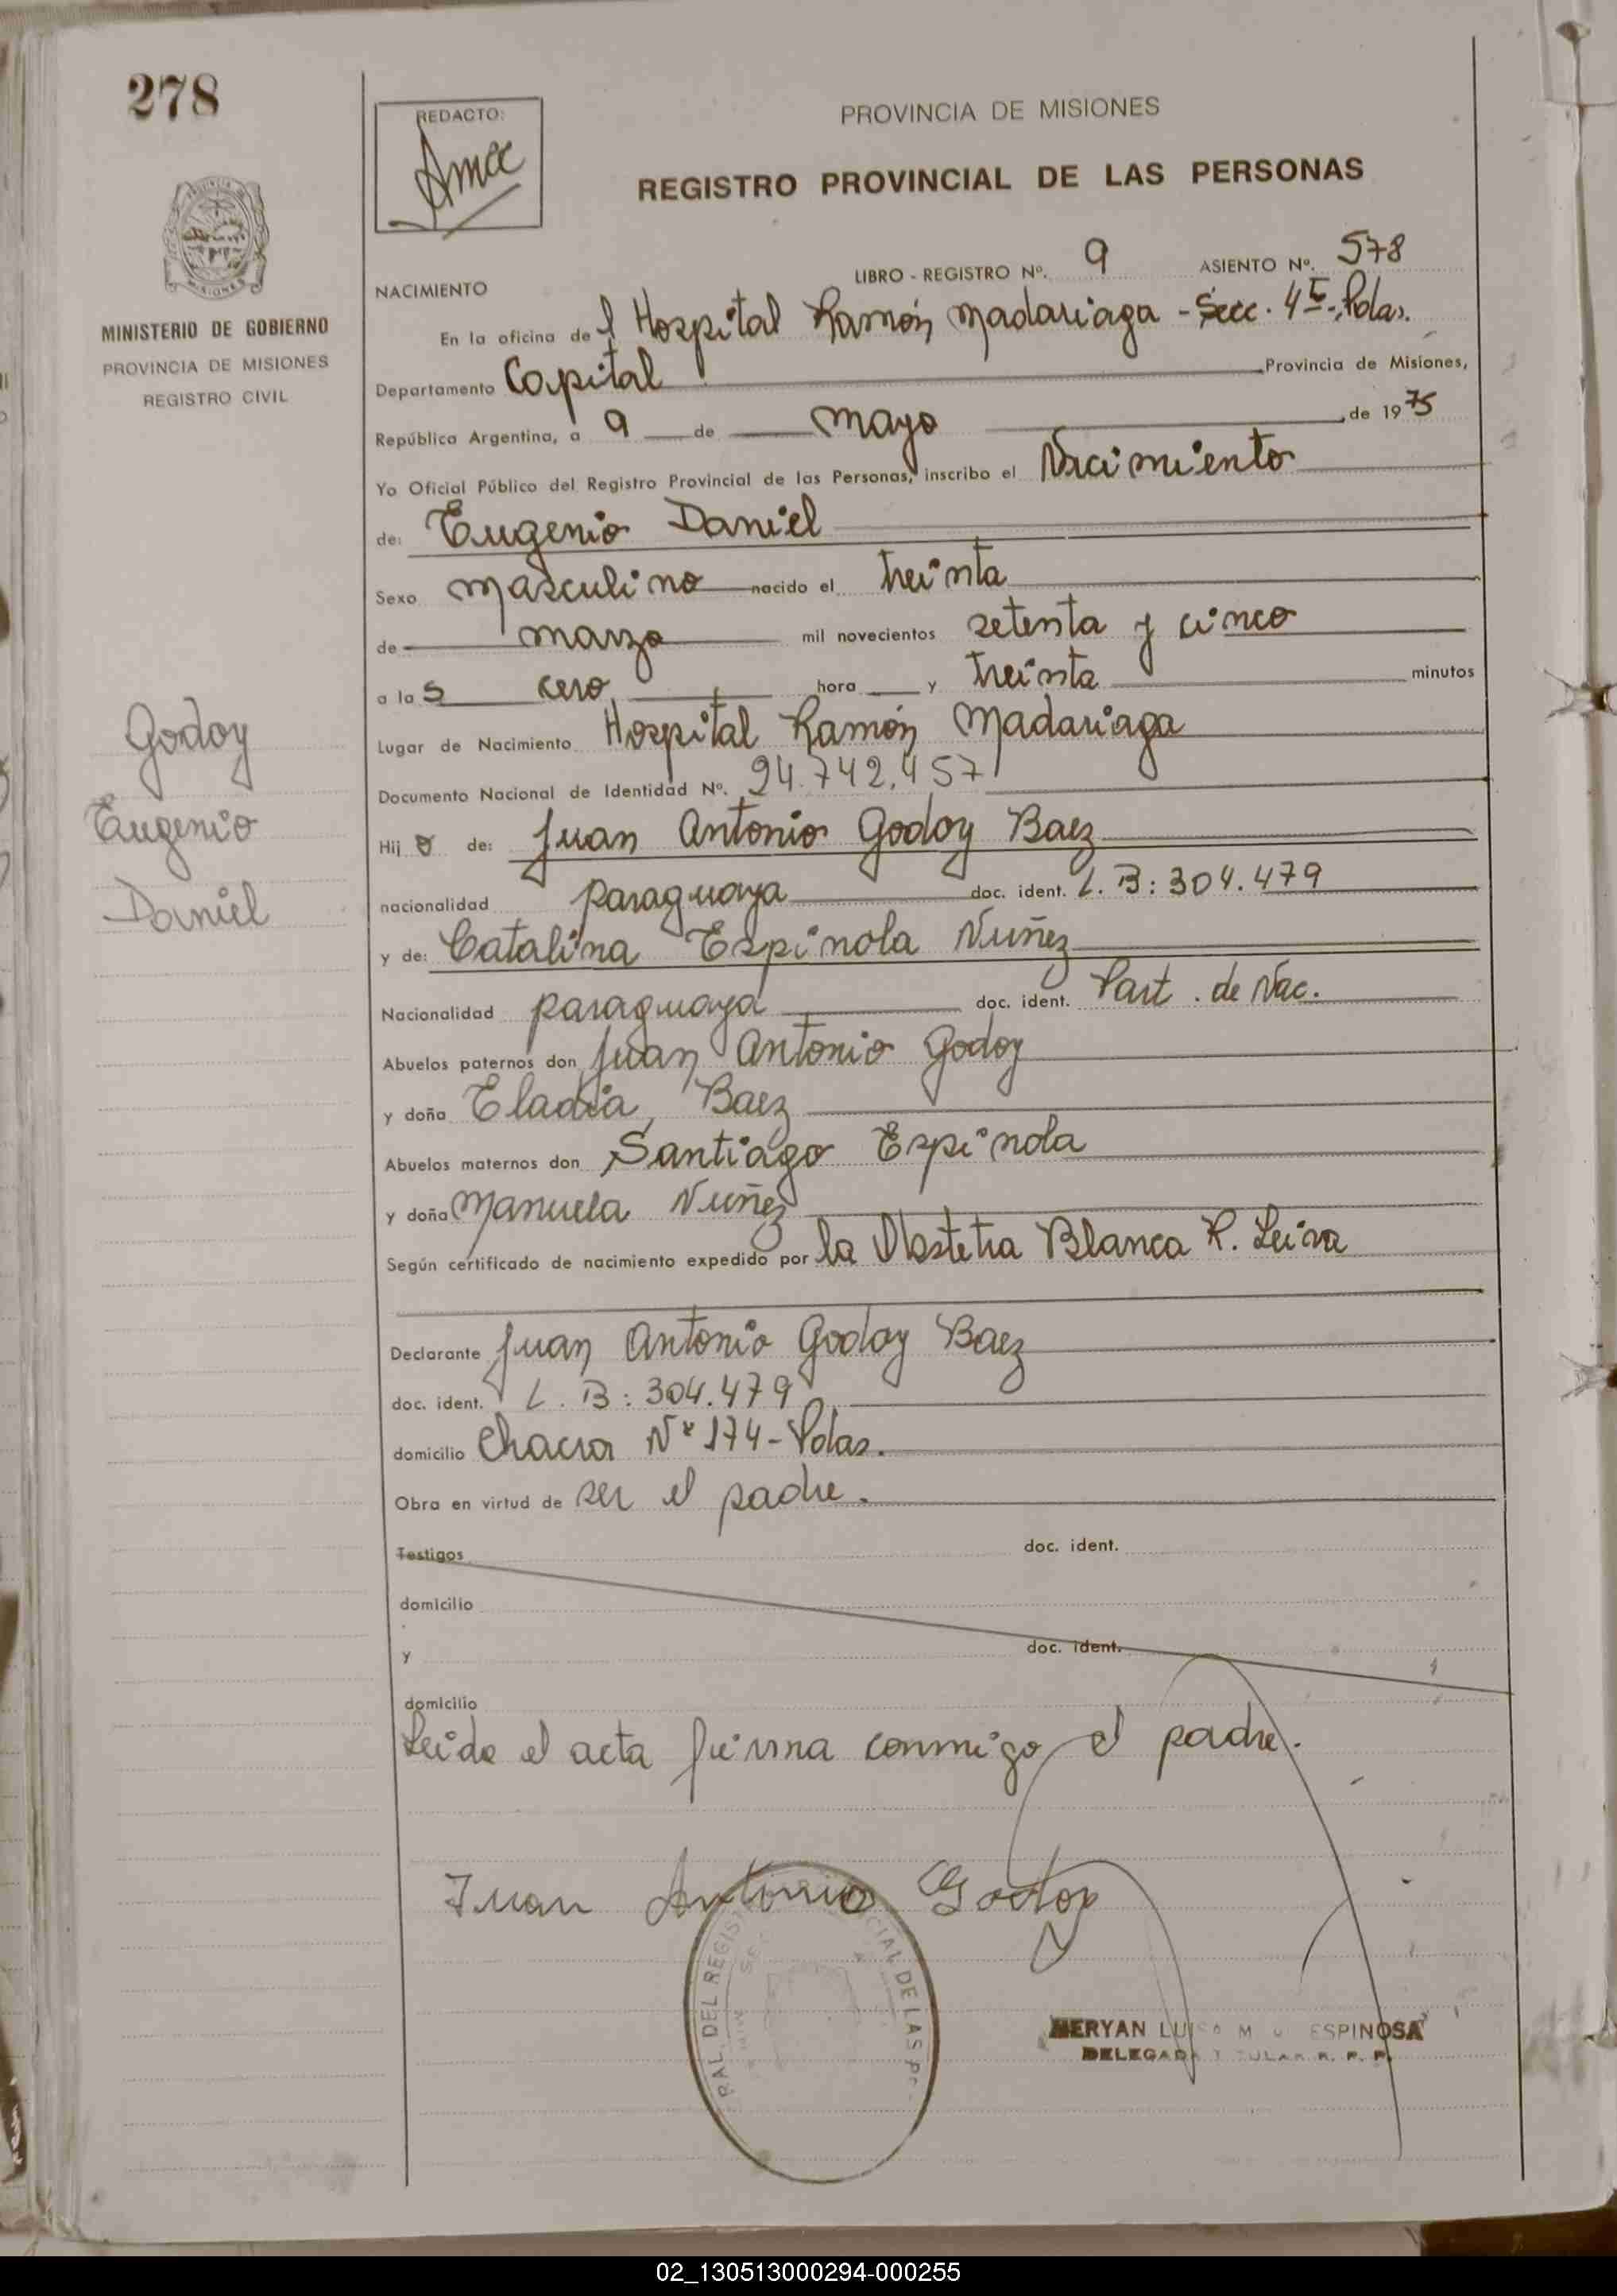 278
REDACTO:
PROVINCIA DE MISIONES
REGISTRO PROVINCIAL DE LAS PERSONAS
MISIONES
MINISTERIO DE GOBIERNO
PROVINCIA DE MISIONES
REGISTRO CIVIL
LIBRO - REGISTRO Nº. 9 ASIENTO Nº. 578
NACIMIENTO
En la oficina de l Hospital Ramón Madariaga - Secc. 4ª - Pdas.
Departamento Capital Provincia de Misiones,
República Argentina, a 9 de mayo de 1975
Yo Oficial Público del Registro Provincial de las Personas, inscribo el Nacimiento
de: Eugenio Daniel
Sexo masculino nacido el treinta
de marzo mil novecientos setenta y cinco
a las cero hora y treinta minutos
Lugar de Nacimiento Hospital Ramón Madariaga
Documento Nacional de Identidad Nº. 24.742.457
Hijo de: Juan Antonio Godoy Baez
nacionalidad paraguaya doc. ident. L. B: 304.479
y de: Catalina Espinola Nuñez
Nacionalidad paraguaya doc. ident. Part. de Nac.
Abuelos paternos don Juan Antonio Godoy
y doña Eladia Baez
Abuelos maternos don Santiago Espinola
y doña Manuela Nuñez
Según certificado de nacimiento expedido por la Obstetra Blanca R. Leiva
Godoy
Eugenio
Daniel
Declarante Juan Antonio Godoy Baez
doc. ident. L. B: 304.479
domicilio Chacra Nº 174 - Pdas.
Obra en virtud de ser el padre.
Testigos doc. ident.
domicilio
y doc. ident.
domicilio
Leida el acta firma conmigo el padre.
Juan Antonio Godoy
RAL. DEL REGIS CIAL DE LAS
MERYAN ESPINOSA
DELEGADA R. P. P.
02_130513000294-000255